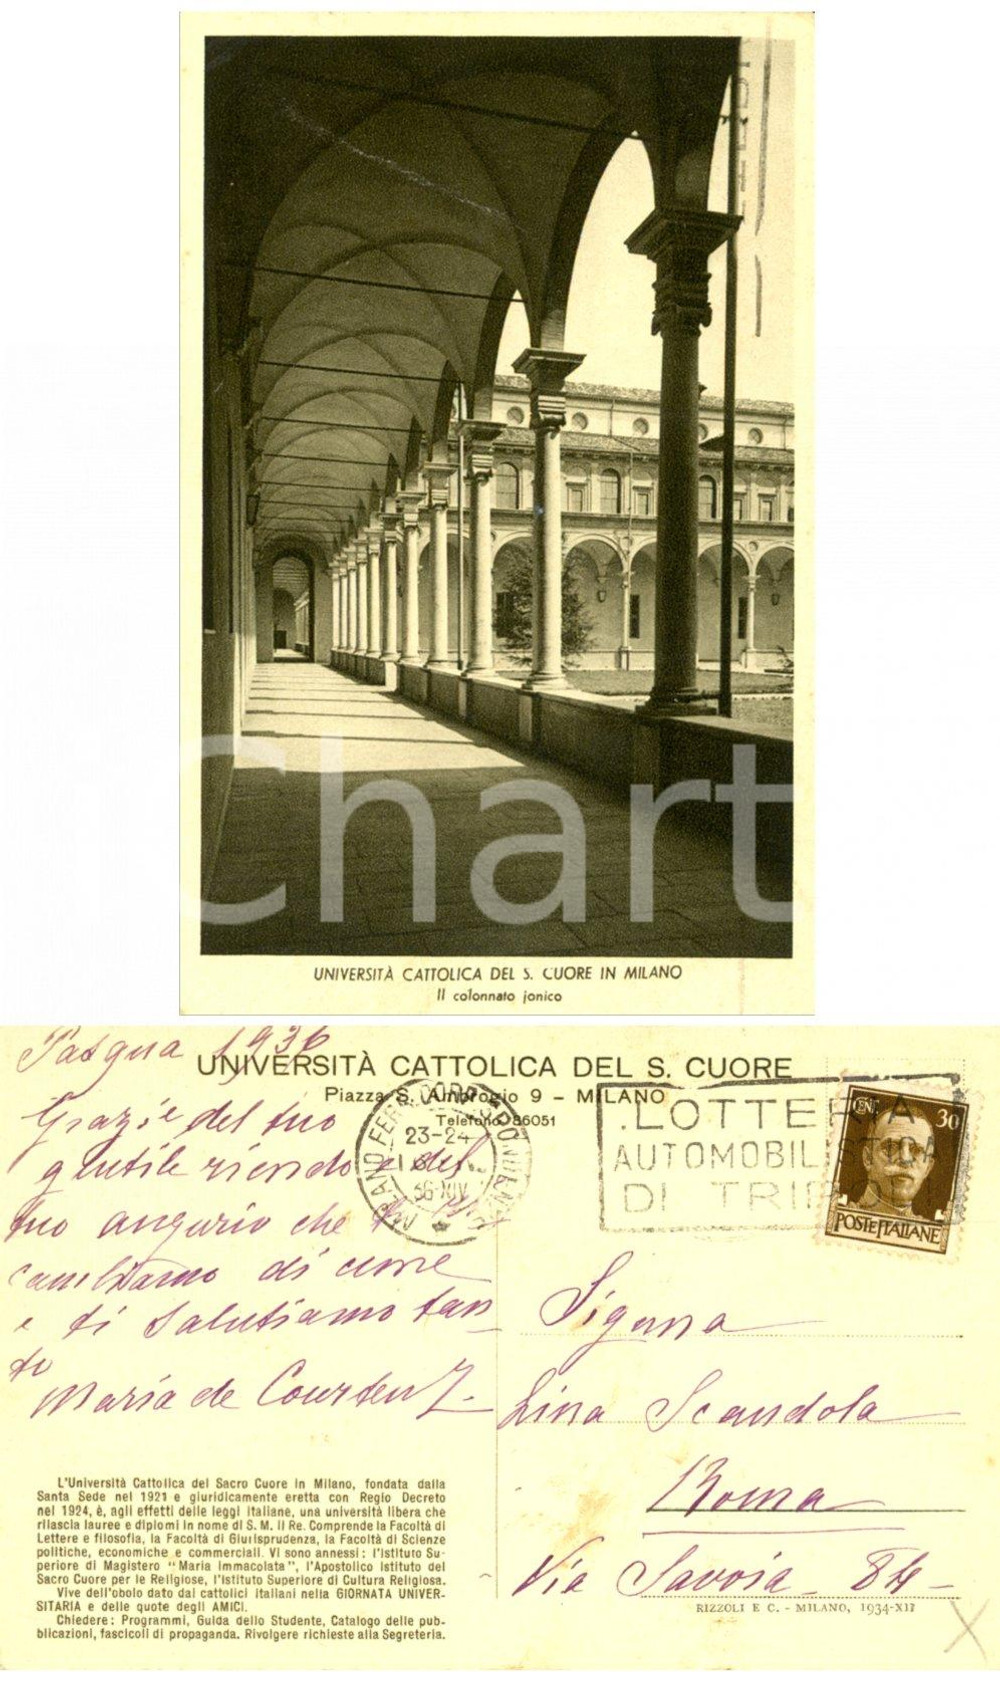 UNIVERSITÀ CATTOLICA DEL S. CUORE IN MILANO
Il colonnato jonico
Chart
Pasqua 1936
UNIVERSITÀ CATTOLICA DEL S. CUORE
Piazza S. Ambrogio 9 - MILANO
Telefono 86051
23-24
36-XIV
LOTTERIA
AUTOMOBILISTICA
DI TRIPOLI
CENT. 30
POSTE ITALIANE
Grazie del tuo
gentile ricordo e del
tuo augurio che
cambiamo di cuore
e ti salutiamo tan
to
Maria de Courten
Signora
Lina Scandola
Roma
Via Savoia 84
L'Università Cattolica del Sacro Cuore in Milano, fondata dalla
Santa Sede nel 1921 e giuridicamente eretta con Regio Decreto
nel 1924, è, agli effetti delle leggi italiane, una università libera che
rilascia lauree e diplomi in nome di S. M. Il Re. Comprende la Facoltà di
Lettere e filosofia, la Facoltà di Giurisprudenza, la Facoltà di Scienze
politiche, economiche e commerciali. Vi sono annessi: l'Istituto Su-
periore di Magistero "Maria Immacolata", l'Apostolico Istituto del
Sacro Cuore per le Religiose, l'Istituto Superiore di Cultura Religiosa.
Vive dell'obolo dato dai cattolici italiani nella GIORNATA UNIVER-
SITARIA e delle quote degli AMICI.
Chiedere: Programmi, Guida dello Studente, Catalogo delle pub-
blicazioni, fascicoli di propaganda. Rivolgere richieste alla Segreteria.
RIZZOLI E C. - MILANO, 1934-XII